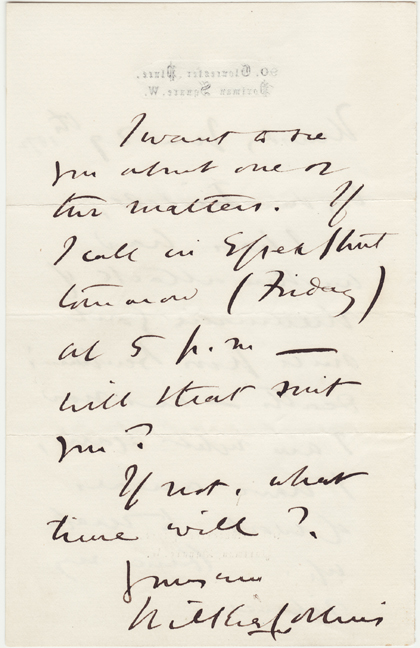 I want to see
you about one or
two matters. If
I call in Essex Street
tomorrow (Friday)
at 5 p.m —
will that suit
you?
If not, what
time will?
Yours ever
Wilkie Collins